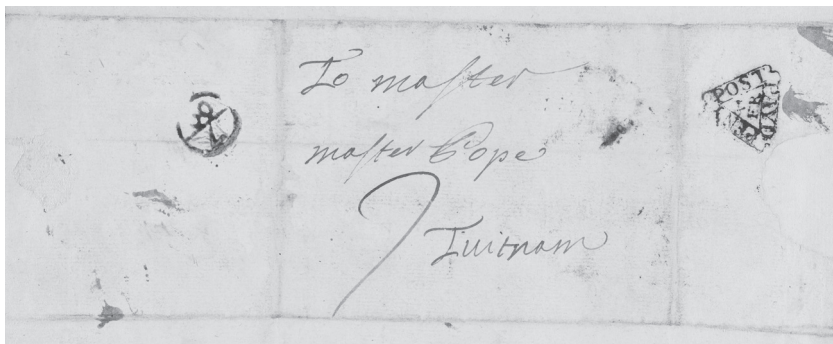 To master
master Pope
Tuitnam
POST
PAYD
PENY